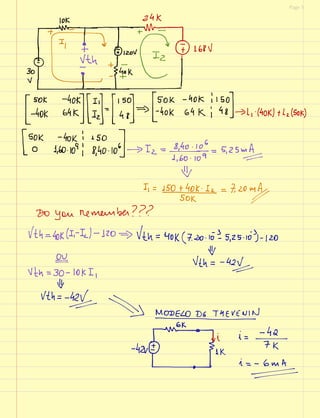 Page 1
10K
24K
I₁
Vth
120V
I₂
168V
40K
30
V
[50K -40K; -40K 64K] [I₁; I₂] = [150; 48] ⇒ [50K -40K ¦ 150; -40K 64K ¦ 48] → L₁·(40K)+L₂(50K)
[50K -40K ¦ 150; 0 1,60·10⁹ ¦ 8,40·10⁶] → I₂ = 8,40·10⁶ / 1,60·10⁹ = 5,25mA
⇓
I₁ = 150+40K·I₂ / 50K = 7,20mA
Do you remember???
Vth=40K(I₁-I₂)-120 ⇒ Vth = 40K(7.20·10⁻³-5,25·10⁻³)-120
⇓
OU
Vth = -42V
Vth=30-10K I₁
⇓
Vth=-42V
MODELO DE THEVENIN
6K
-42V
i
1K
i = -42 / 7K
i = -6mA